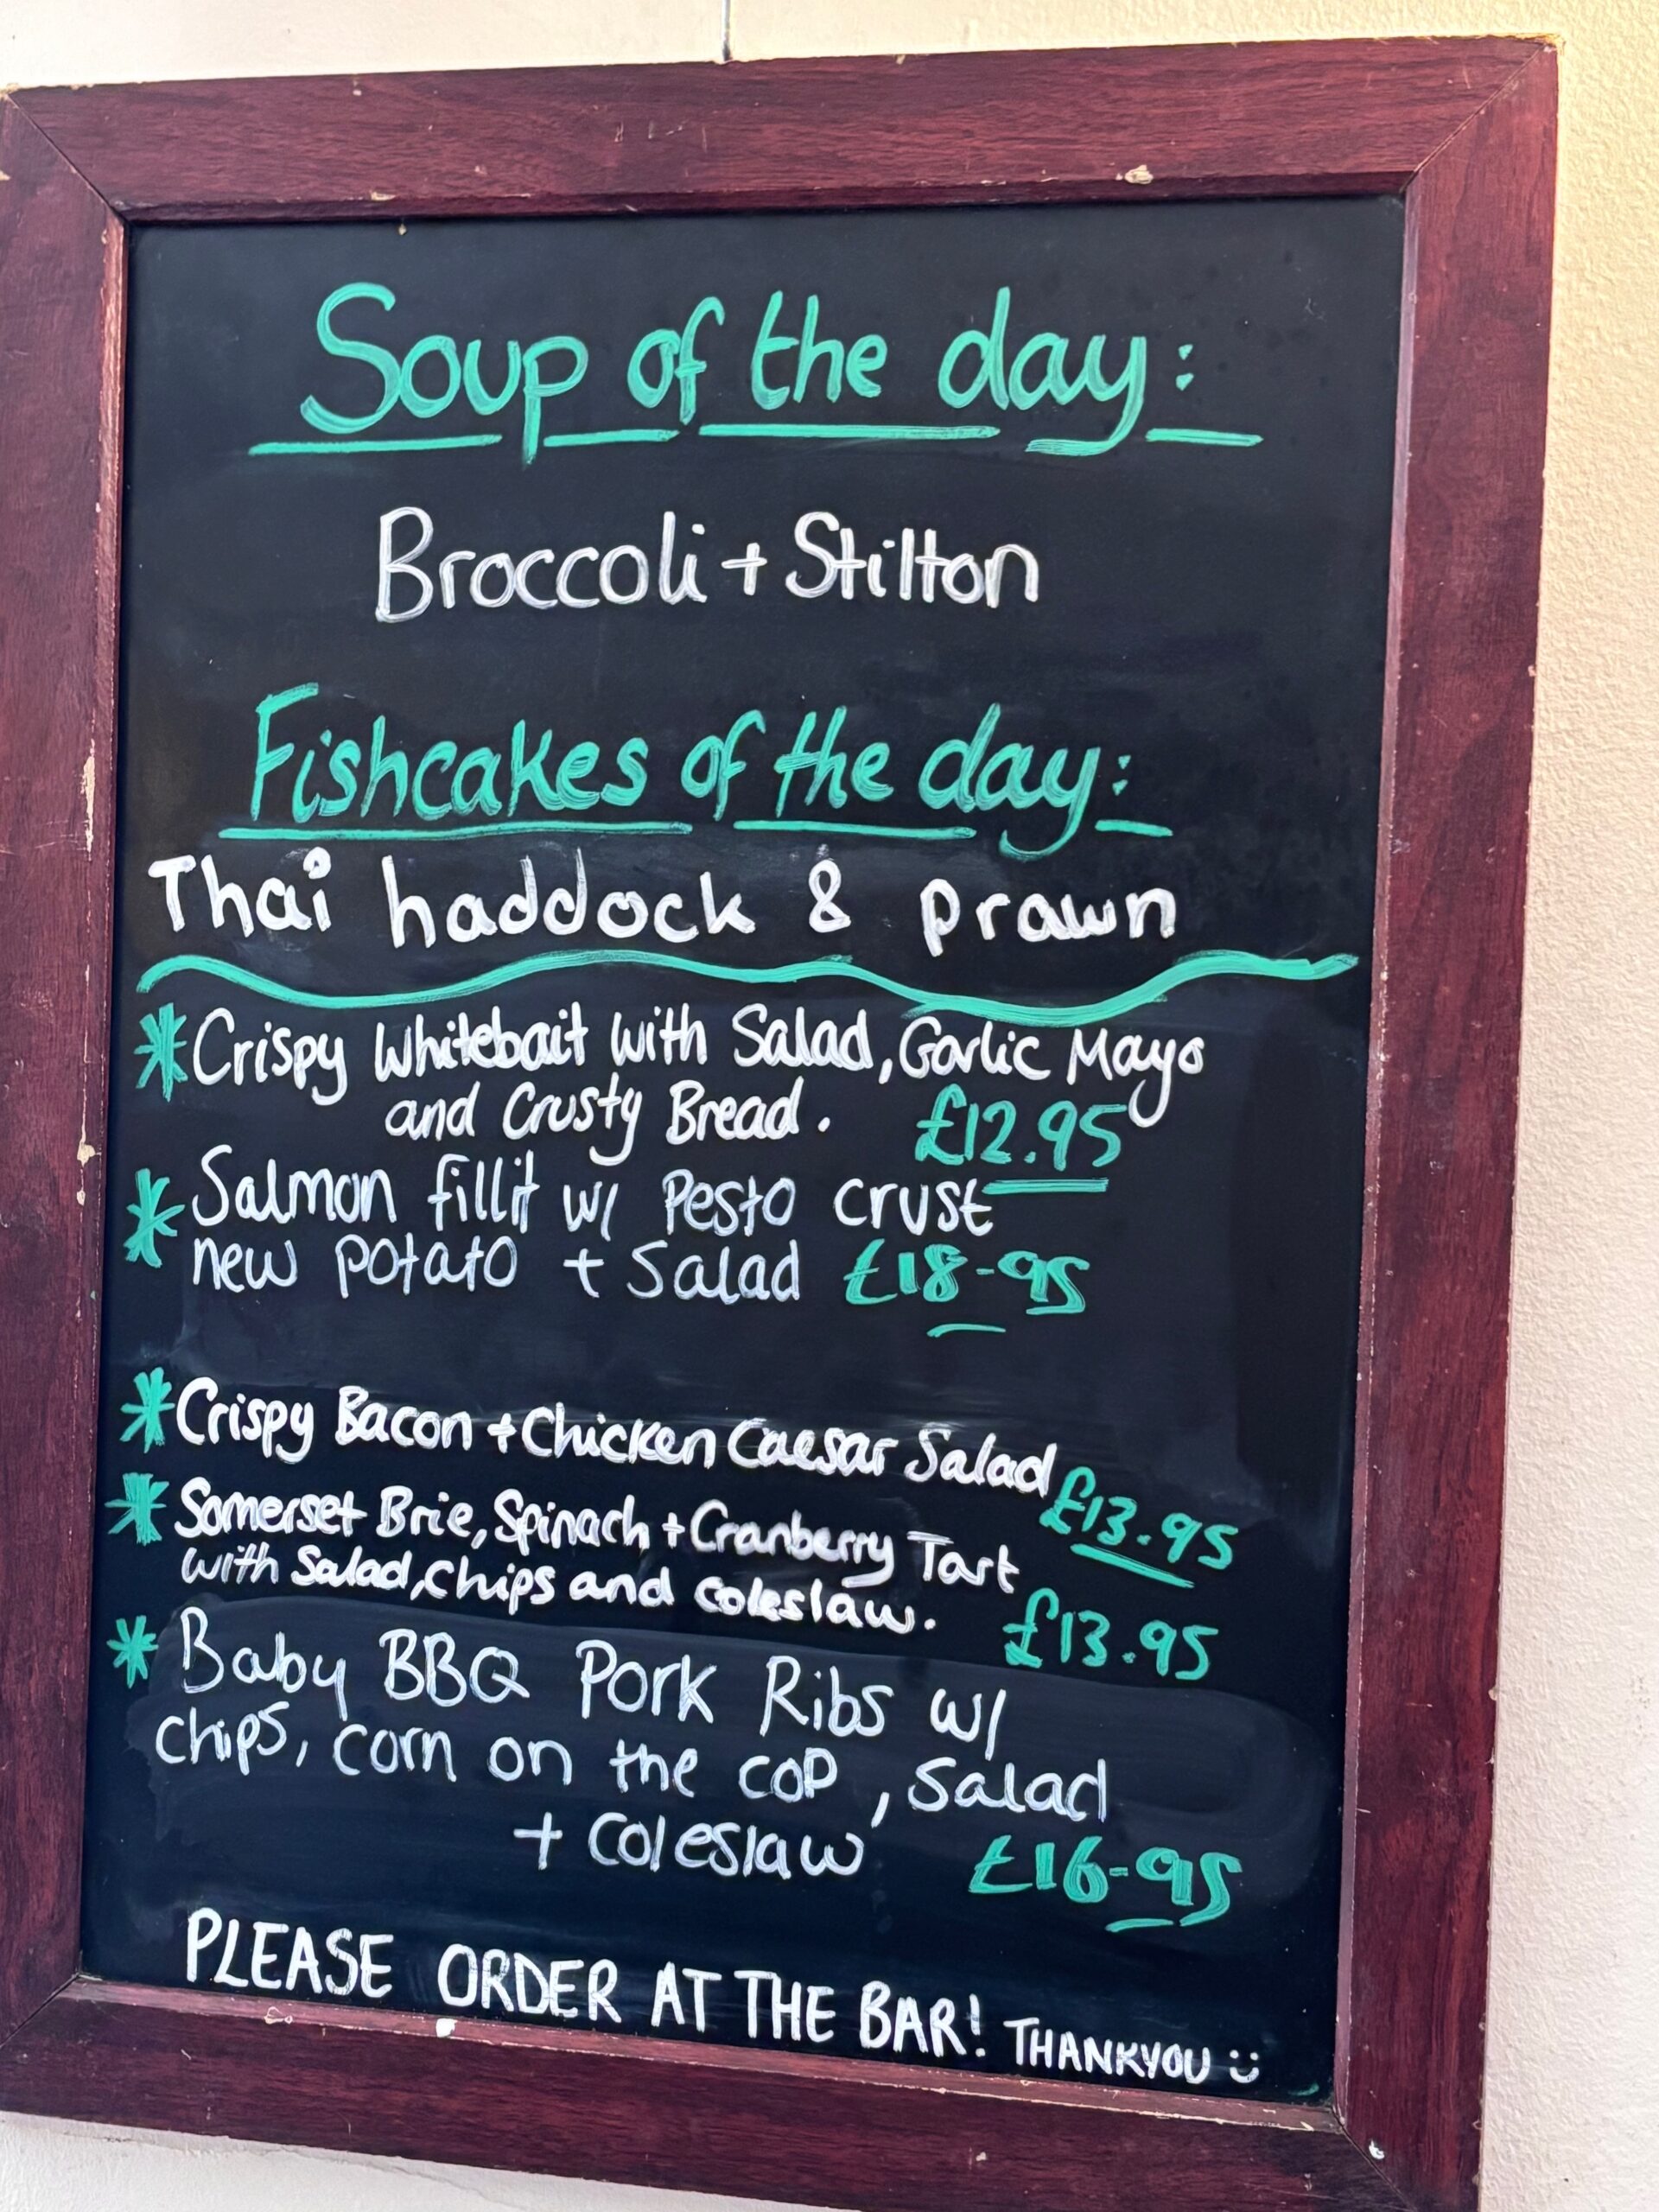 Soup of the day:
Broccoli + Stilton
Fishcakes of the day:
Thai haddock & prawn
* Crispy Whitebait with Salad, Garlic Mayo
and Crusty Bread. £12.95
* Salmon fillit w/ Pesto crust
new potato + Salad £18-95
* Crispy Bacon + Chicken Caesar Salad £13.95
* Somerset Brie, Spinach + Cranberry Tart
with Salad, chips and coleslaw. £13.95
* Baby BBQ Pork Ribs w/
chips, corn on the coP, Salad
+ Coleslaw £16-95
PLEASE ORDER AT THE BAR! THANKYOU :)